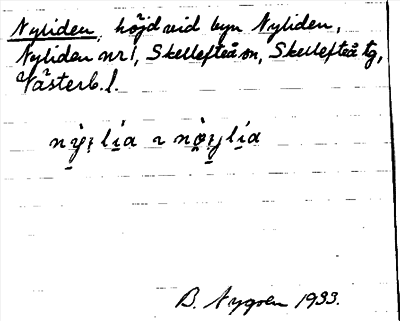 Nyliden, höjd vid byn Nyliden,
Nyliden nr 1, Skellefteå sn, Skellefteå tg,
Västerb. l.
B. Nygren 1933.